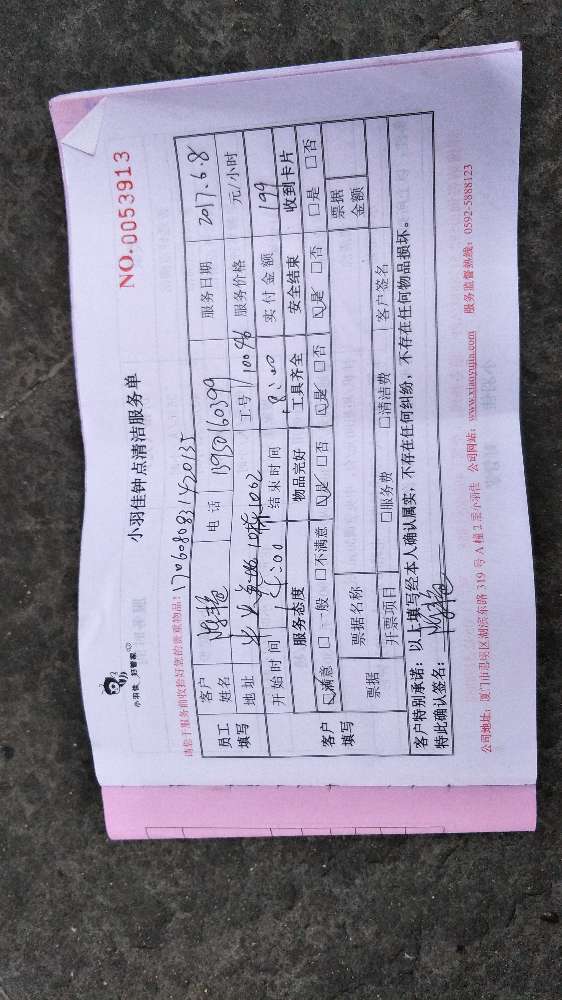 小羽佳 好管家
小羽佳钟点清洁服务单
NO.0053913
请您于服务前收拾好您的贵重物品!
170608831420135
员工填写 客户姓名 电话 13950160399 服务日期 2017.6.8
地址 10栋1002 工号 10096 服务价格 元/小时
开始时间 :00 结束时间 8:00 实付金额 199
客户填写 服务态度 物品完好 工具齐全 安全结束 收到卡片
☑满意 □一般 □不满意 ☑是 □否 ☑是 □否 ☑是 □否 □是 □否
票据 票据名称 票据金额
开票项目 □服务费 □清洁费 客户签名
客户特别承诺:以上填写经本人确认属实,不存在任何纠纷,不存在任何物品损坏。
特此确认签名:
公司地址:厦门市思明区湖滨东路 319 号 A 幢 2 楼小羽佳 公司网站:www.xiaoyujia.com 服务监督热线:0592-5888123